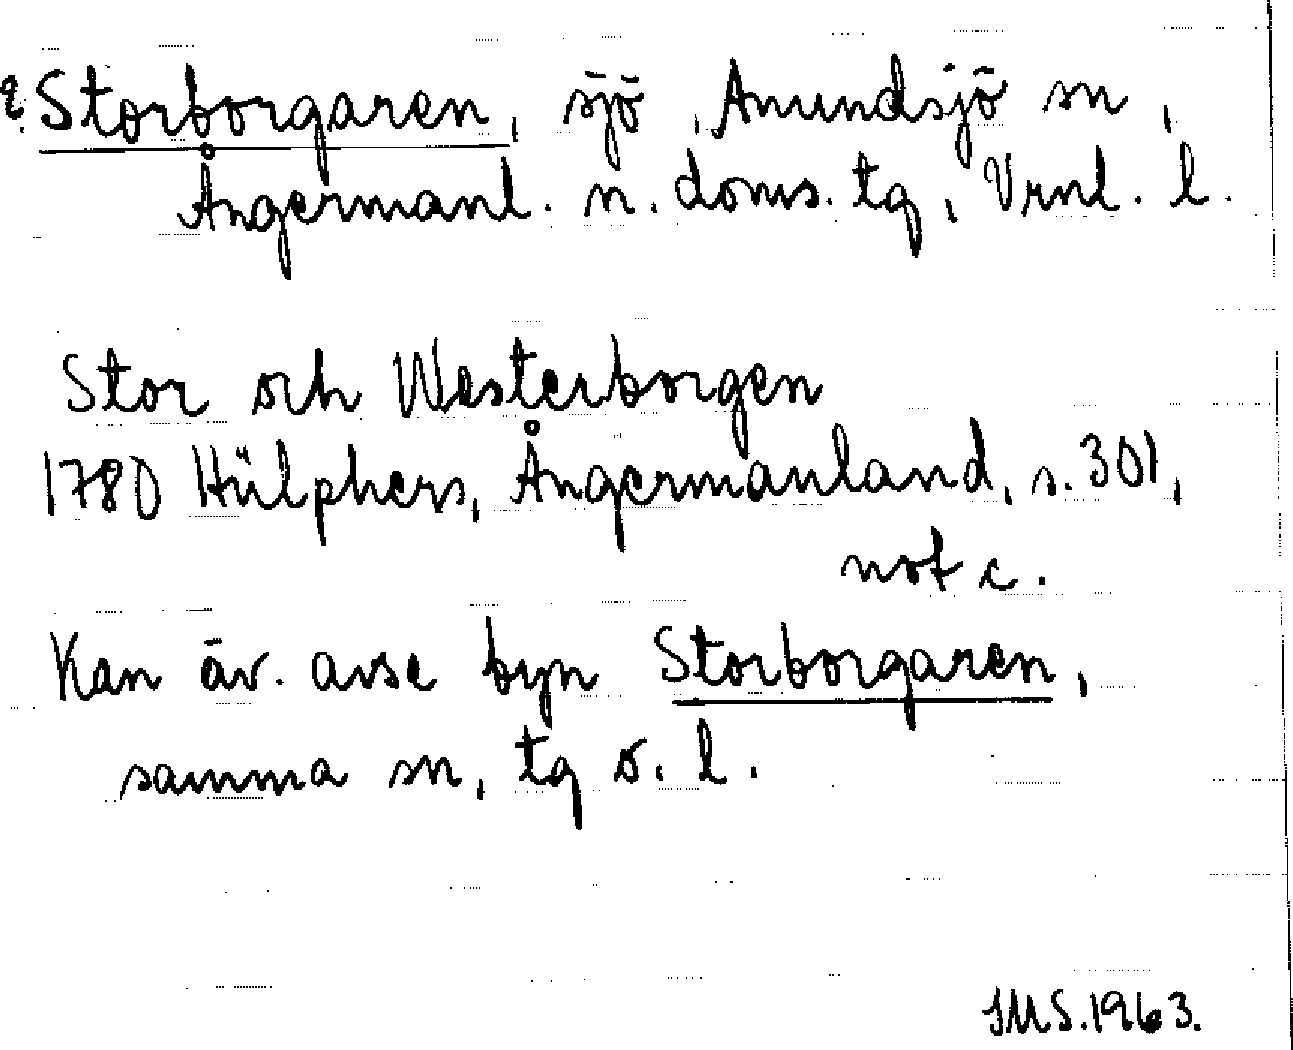 2. Storborgaren, sjö, Anundsjö sn,
Ångermanl. n. doms. tg, Vrnl. l.
Stor och Westerborgen
1780 Hülphers, Ångermanland, s. 301,
not c.
Kan äv. avse byn Storborgaren,
samma sn, tg o. l.
IMS. 1963.